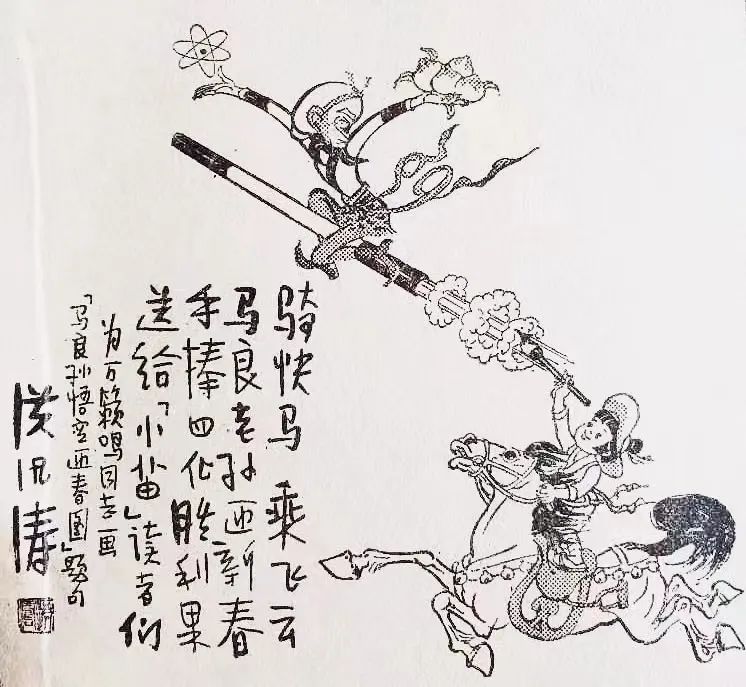 骑快马 乘飞云
马良老孙迎新春
手捧四化胜利果
送给「小苗」读者们
为万籁鸣同志画
「马良孙悟空迎春图」题句
洪汛涛